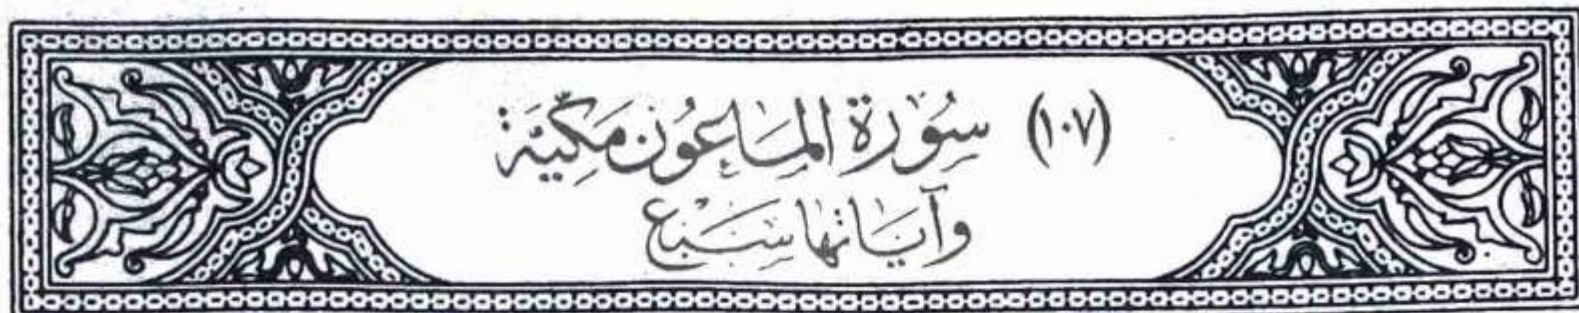 (١٠٧) سُورَة المَاعُون مَكيَّة
وآيَاتها سَبْع